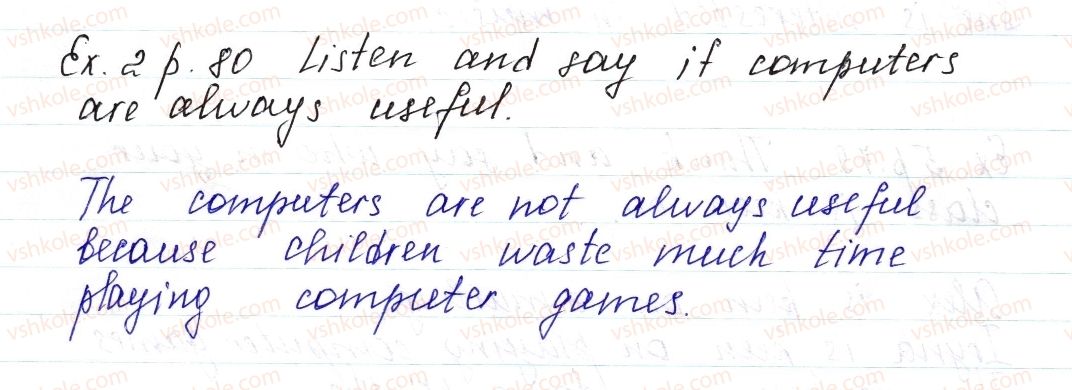 Ex. 2 p. 80 Listen and say if computers
are always useful.
The computers are not always useful
because children waste much time
playing computer games.